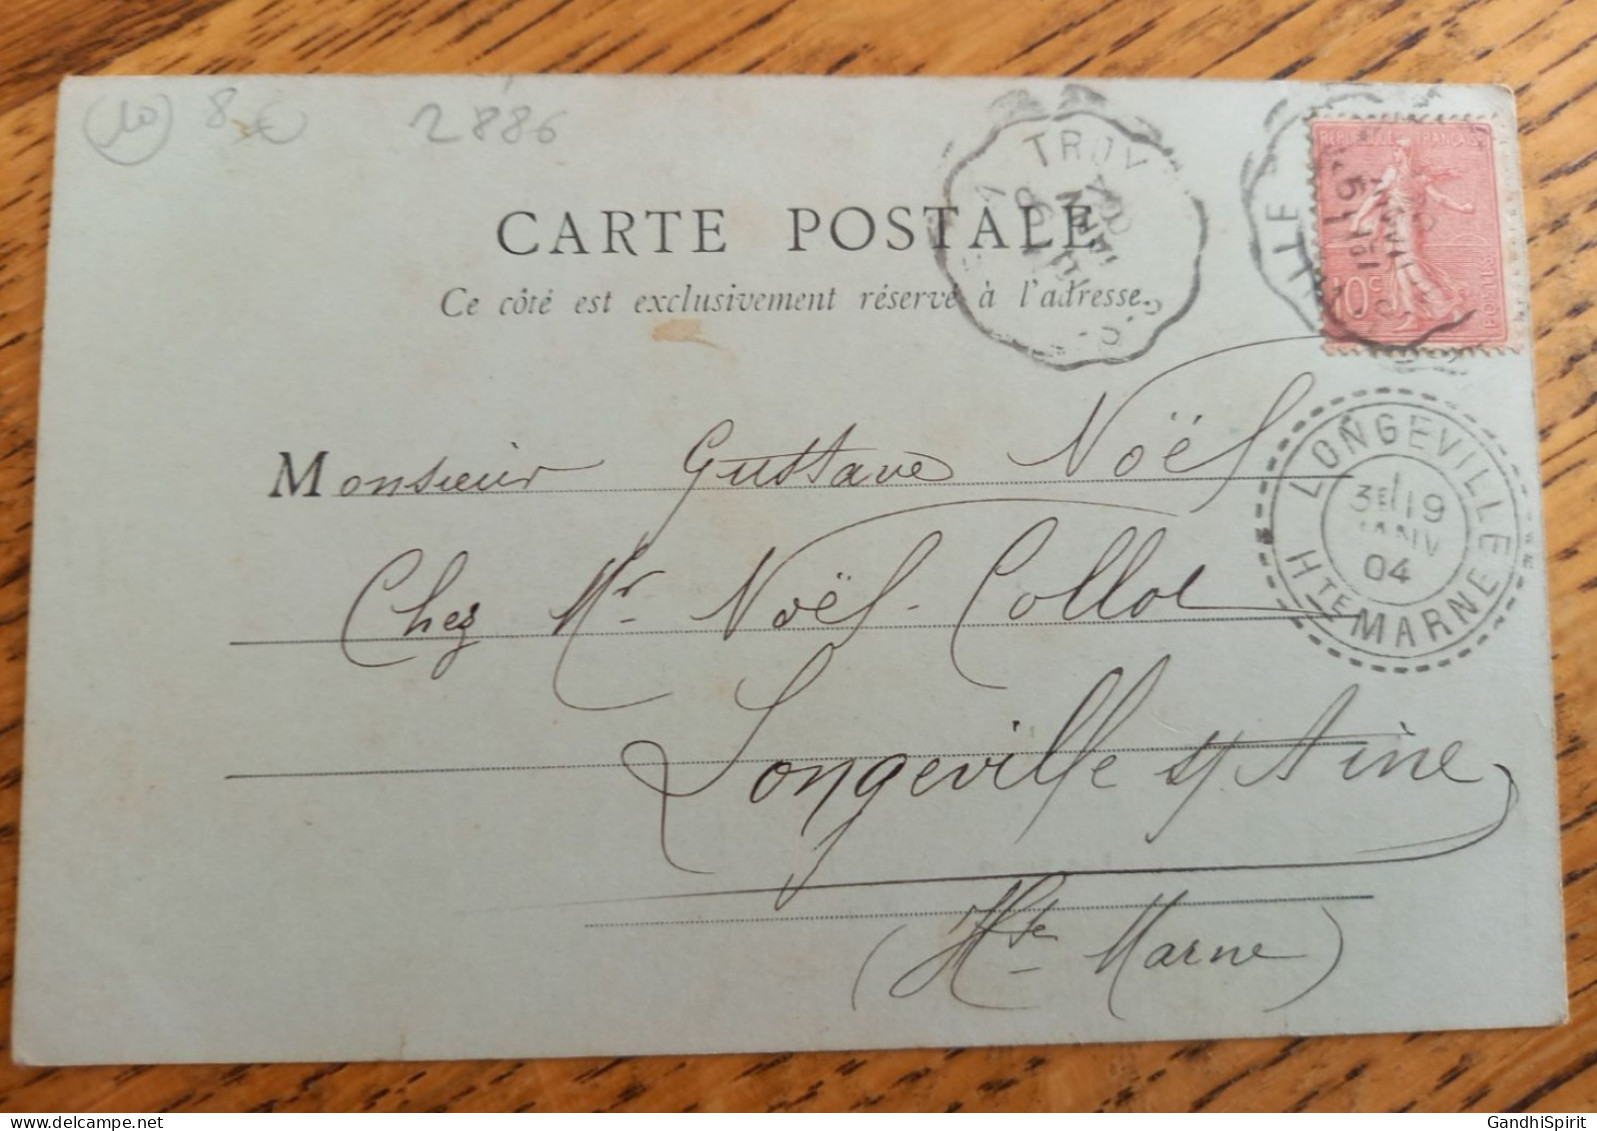 (10) 8 € 2886
CARTE POSTALE
Ce côté est exclusivement réservé à l'adresse.
Monsieur Gustave Noël
Chez Mr Noël-Collot
Longeville s/ Aine
(Hte Marne)
TROY
10c
POSTES
LONGEVILLE
3E 19
JANV
04
HTE MARNE
GandhiSpirit